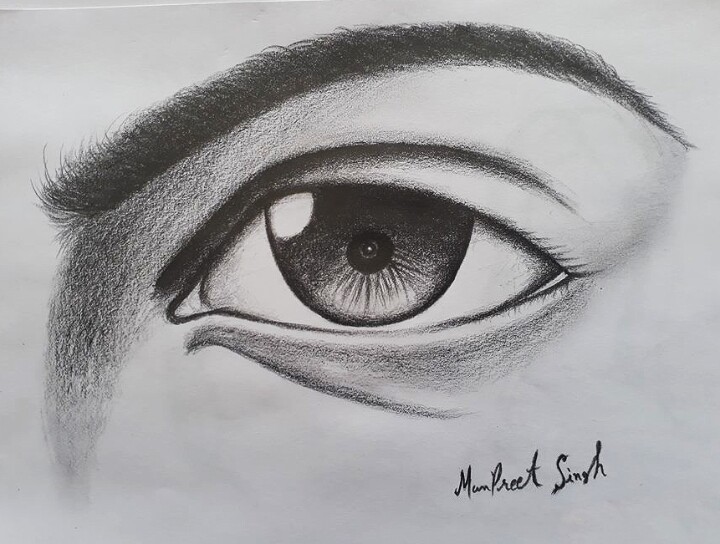 ManPreet Singh